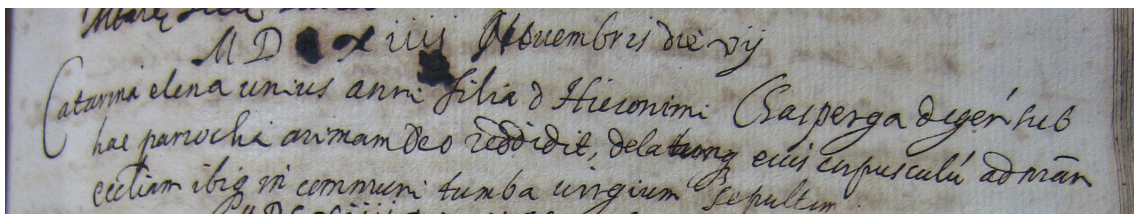 M D C X iiii Novembris die vij
Catarina elena unius anni filia d Hieronimi Chasperga degen sub
hac parrochi animam deo reddidit, delatumq eius corpusculũ ad nrãm
eccliam ibiq in communi tumba virgium sepultum